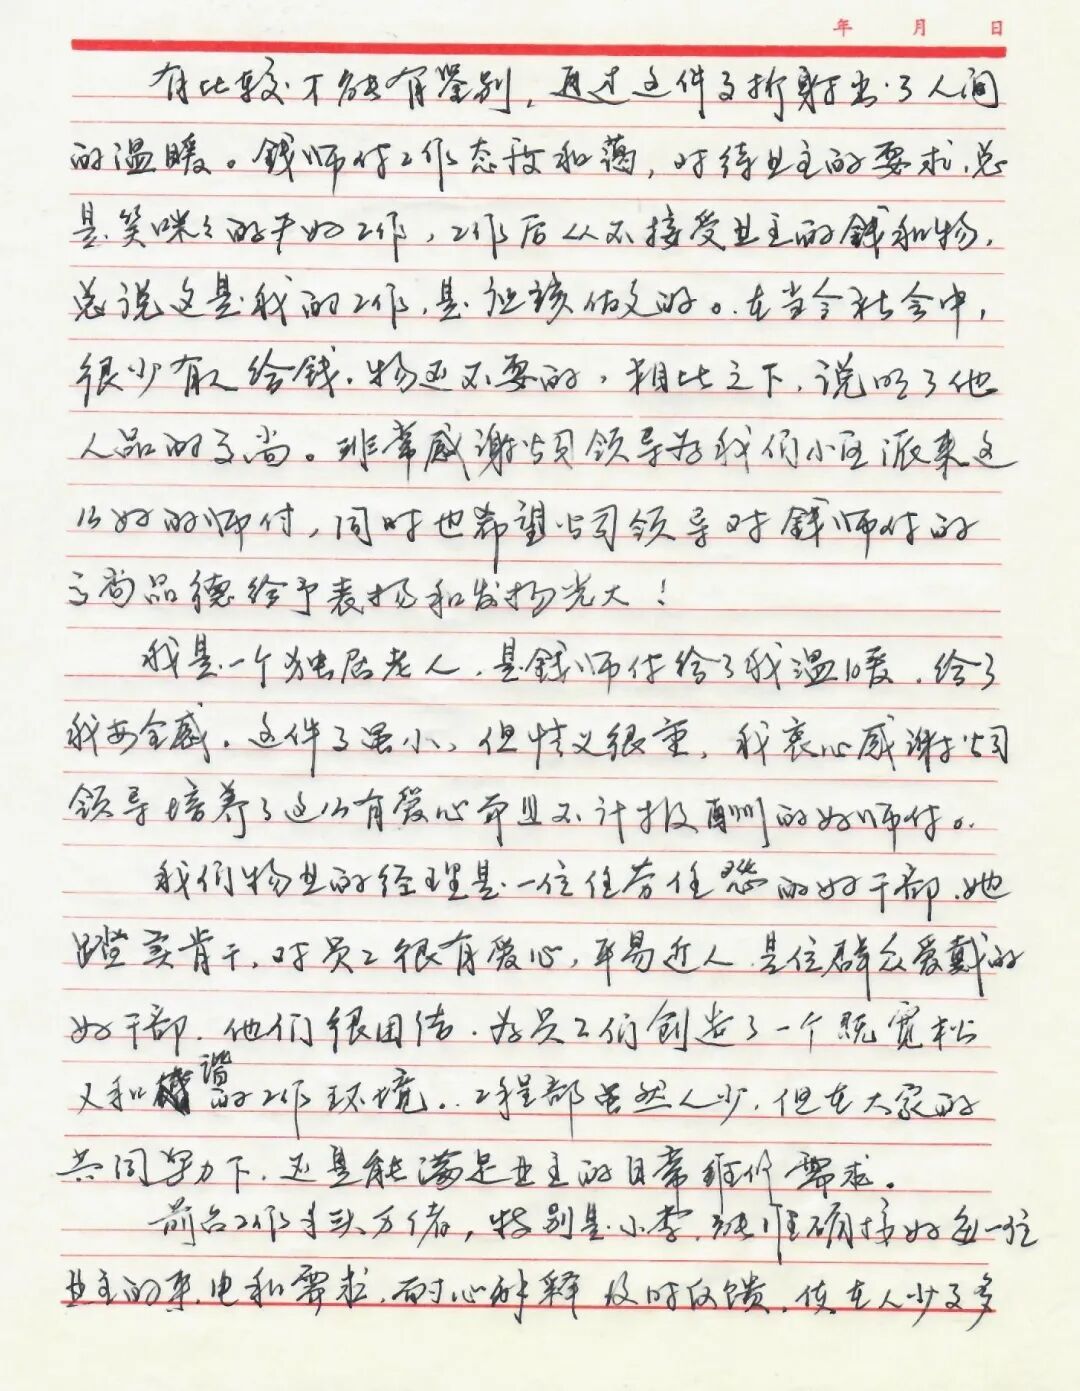 年 月 日
有比较才能有鉴别，通过这件事折射出了人间
的温暖。錢师付工作态度和蔼，对待业主的要求，总
是笑咪咪的干好工作，工作后从不接受业主的錢和物，
总说这是我的工作，是应该做的。在当今社会中，
很少有人给钱、物还不要的，相比之下，说明了他
人品的高尚。非常感谢公司领导为我们小区派来这
么好的师付，同时也希望公司领导对錢师付的
高尚品德给予表扬和发扬光大！
我是一个独居老人，是錢师付给了我温暖，给了
我安全感。这件事虽小，但情义很重，我衷心感谢公司
领导培养了这么有爱心而且不计报酬的好师付。
我们物业的经理是一位任劳任怨的好干部，她
踏实肯干，对员工很有爱心，平易近人，是位群众爱戴的
好干部。他们很团结，为员工们创造了一个既宽松
又和谐的工作环境。工程部虽然人少，但在大家的
共同努力下，还是能满足业主的日常维修需求。
前台工作千头万绪，特别是小李，能准确接好每一位
业主的来电和需求，耐心解释及时反馈，使在人少事多